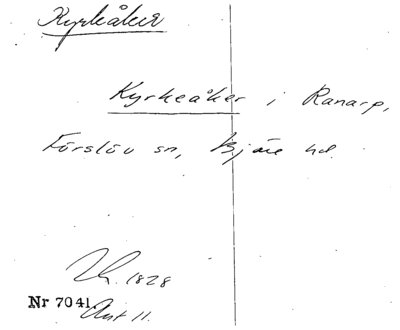 Kyrkåker
Kyrkeåker i Ranarp,
Förslöv sn, Bjäre hd.
1828
Nr 7041. Akt 11.